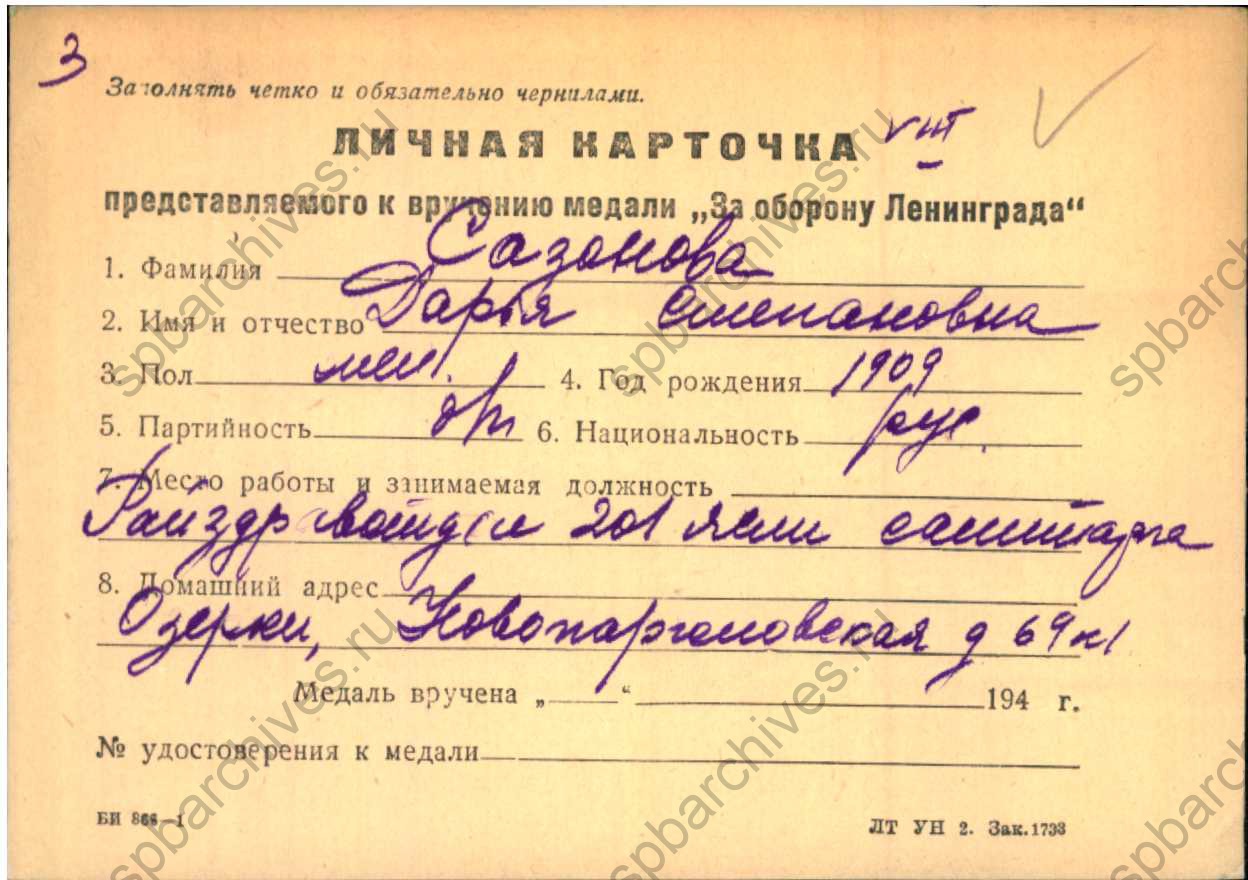 3
Заполнять четко и обязательно чернилами.
ЛИЧНАЯ КАРТОЧКА
представляемого к вручению медали „За оборону Ленинграда“
1. Фамилия Сазонова
2. Имя и отчество Дарья Степановна
3. Пол жен. 4. Год рождения 1909
5. Партийность б/п 6. Национальность рус.
7. Место работы и занимаемая должность
Райздравотдел 201 ясли санитарка
8. Домашний адрес
Озерки, Новопарголовская д 69 к1
Медаль вручена „ “ 194 г.
№ удостоверения к медали
БИ 866—1
ЛТ УН 2. Зак.1733
spbarchives.ru